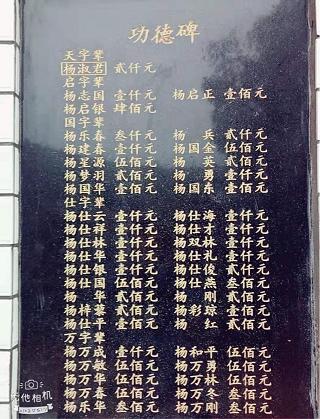 功德碑
天字辈
杨淑君 贰仟元
启字辈
杨志国 壹仟元 杨启正 壹佰元
杨启银 肆佰元
国字辈
杨乐春 叁仟元 杨 兵 贰仟元
杨建春 壹仟元 杨国全 伍佰元
杨星源 伍佰元 杨 英 贰佰元
杨梦羽 贰佰元 杨 勇 壹佰元
杨国华 壹佰元 杨国东 壹佰元
仕字辈
杨仕云 壹仟元 杨仕海 壹仟元
杨仕祥 壹仟元 杨仕才 壹仟元
杨仕林 壹仟元 杨双林 壹仟元
杨仕华 壹仟元 杨仕礼 壹仟元
杨仕银 壹仟元 杨仕俊 贰仟元
杨仕国 伍佰元 杨仕燕 叁佰元
杨 华 贰佰元 杨 刚 贰佰元
杨梓 贰佰元 杨彩琼 壹佰元
杨仕平 壹佰元 杨 红 贰佰元
万字辈
杨万成 壹佰元 杨和平 伍佰元
杨万敏 伍佰元 杨万勇 伍佰元
杨万华 伍佰元 杨万林 伍佰元
杨万春 伍佰元 杨万冬 叁佰元
杨乐华 叁佰元 杨万刚 叁佰元
其他相机